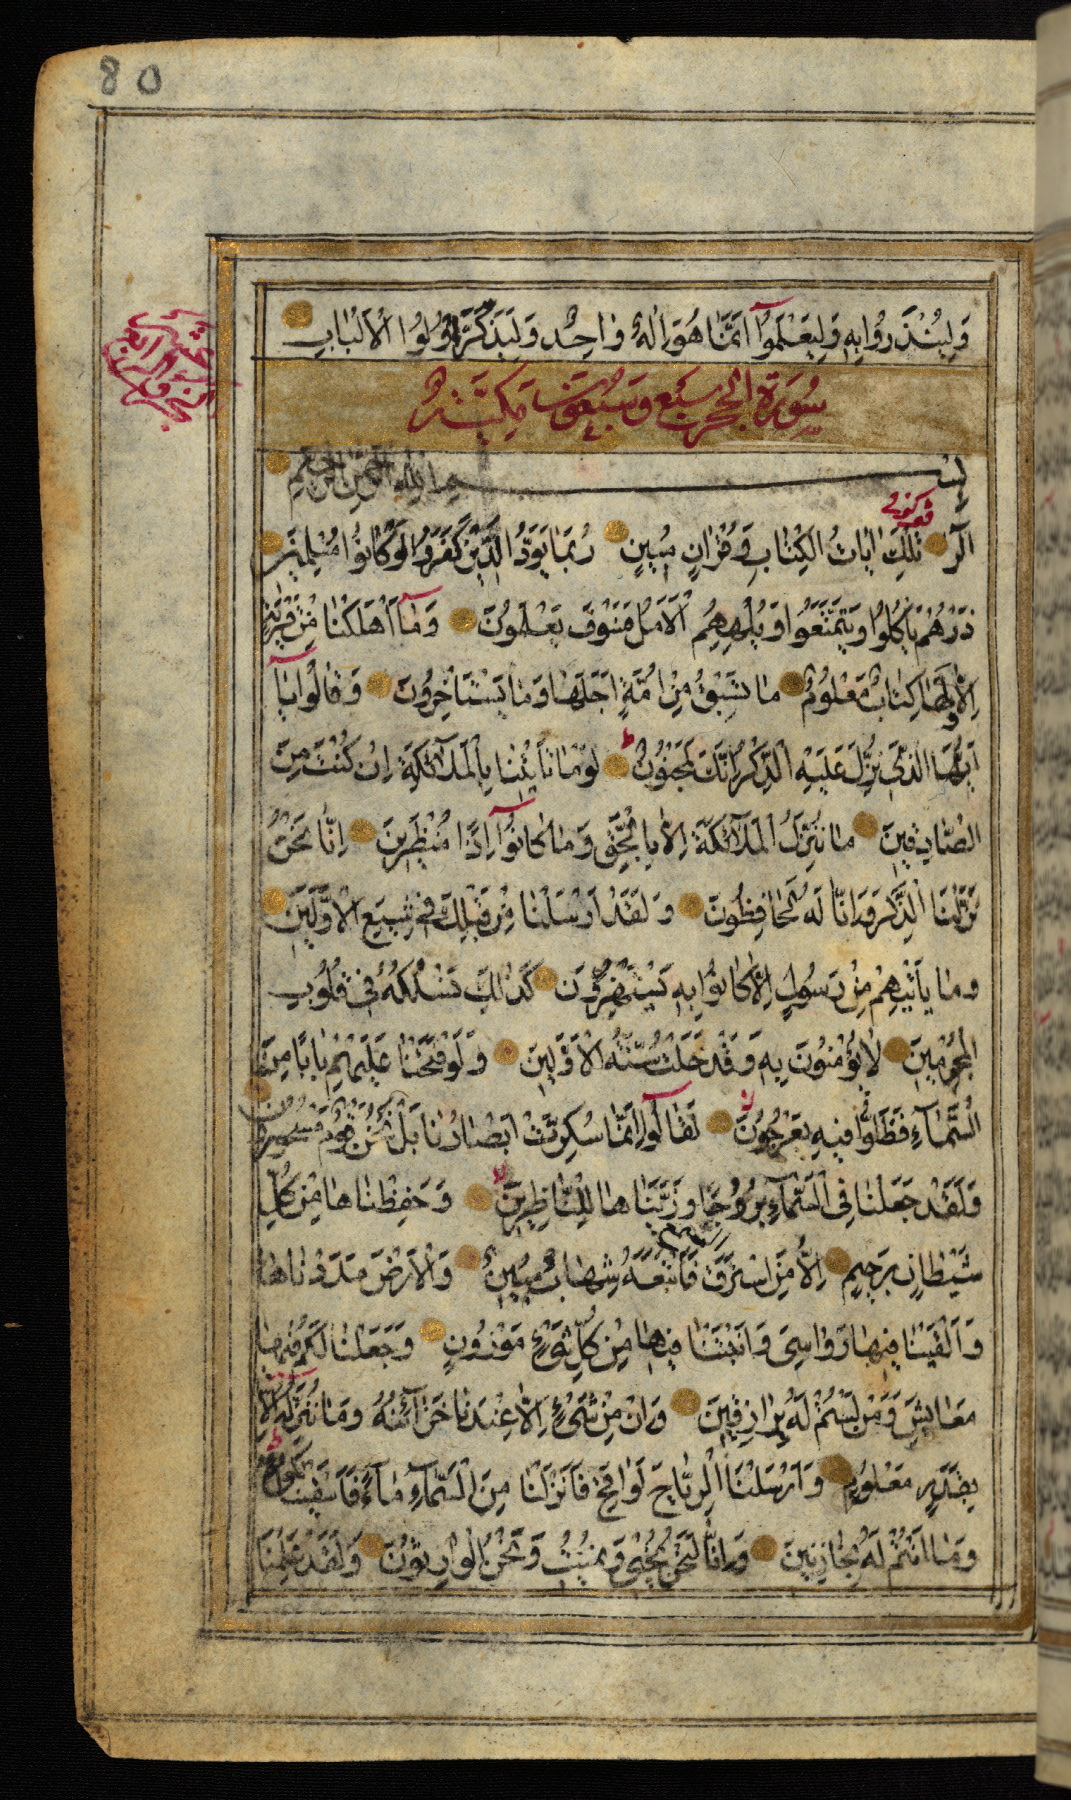 80
وَلِيُنْذَرُوا بِهِ وَلِيَعْلَمُوا اَنَّمَا هُوَ اِلٰهٌ وَاحِدٌ وَلِيَذَّكَّرَ اُولُوا الْاَلْبَابِ
سُورَةُ الْحِجْرِ تِسْعٌ وَتِسْعُونَ مَكِّيَّة
بِسْمِ اللّٰهِ الرَّحْمٰنِ الرَّحِيمِ
الٓرٰ تِلْكَ اٰيَاتُ الْكِتَابِ وَقُرْاٰنٍ مُبِينٍ رُبَمَا يَوَدُّ الَّذِينَ كَفَرُوا لَوْ كَانُوا مُسْلِمِينَ
ذَرْهُمْ يَأْكُلُوا وَيَتَمَتَّعُوا وَيُلْهِهِمُ الْاَمَلُ فَسَوْفَ يَعْلَمُونَ وَمَآ اَهْلَكْنَا مِنْ قَرْيَةٍ
اِلَّا وَلَهَا كِتَابٌ مَعْلُومٌ مَا تَسْبِقُ مِنْ اُمَّةٍ اَجَلَهَا وَمَا يَسْتَأْخِرُونَ وَقَالُوا يَآ
اَيُّهَا الَّذِي نُزِّلَ عَلَيْهِ الذِّكْرُ اِنَّكَ لَمَجْنُونٌ لَوْ مَا تَأْتِينَا بِالْمَلٰٓائِكَةِ اِنْ كُنْتَ مِنَ
الصَّادِقِينَ مَا نُنَزِّلُ الْمَلٰٓائِكَةَ اِلَّا بِالْحَقِّ وَمَا كَانُوٓا اِذًا مُنْظَرِينَ اِنَّا نَحْنُ
نَزَّلْنَا الذِّكْرَ وَاِنَّا لَهُ لَحَافِظُونَ وَلَقَدْ اَرْسَلْنَا مِنْ قَبْلِكَ فِي شِيَعِ الْاَوَّلِينَ
وَمَا يَأْتِيهِمْ مِنْ رَسُولٍ اِلَّا كَانُوا بِهِ يَسْتَهْزِؤُنَ كَذٰلِكَ نَسْلُكُهُ فِي قُلُوبِ
الْمُجْرِمِينَ لَا يُؤْمِنُونَ بِهِ وَقَدْ خَلَتْ سُنَّةُ الْاَوَّلِينَ وَلَوْ فَتَحْنَا عَلَيْهِمْ بَابًا مِنَ
السَّمَآءِ فَظَلُّوا فِيهِ يَعْرُجُونَ لَقَالُوٓا اِنَّمَا سُكِّرَتْ اَبْصَارُنَا بَلْ نَحْنُ قَوْمٌ مَسْحُورُونَ
وَلَقَدْ جَعَلْنَا فِي السَّمَآءِ بُرُوجًا وَزَيَّنَّاهَا لِلنَّاظِرِينَ وَحَفِظْنَاهَا مِنْ كُلِّ
شَيْطَانٍ رَجِيمٍ اِلَّا مَنِ اسْتَرَقَ السَّمْعَ فَاَتْبَعَهُ شِهَابٌ مُبِينٌ وَالْاَرْضَ مَدَدْنَاهَا
وَاَلْقَيْنَا فِيهَا رَوَاسِيَ وَاَنْبَتْنَا فِيهَا مِنْ كُلِّ شَيْءٍ مَوْزُونٍ وَجَعَلْنَا لَكُمْ فِيهَا
مَعَايِشَ وَمَنْ لَسْتُمْ لَهُ بِرَازِقِينَ وَاِنْ مِنْ شَيْءٍ اِلَّا عِنْدَنَا خَزَآئِنُهُ وَمَا نُنَزِّلُهُ اِلَّا
بِقَدَرٍ مَعْلُومٍ وَاَرْسَلْنَا الرِّيَاحَ لَوَاقِحَ فَاَنْزَلْنَا مِنَ السَّمَآءِ مَآءً فَاَسْقَيْنَاكُمُوهُ
وَمَا اَنْتُمْ لَهُ بِخَازِنِينَ وَاِنَّا لَنَحْنُ نُحْيِي وَنُمِيتُ وَنَحْنُ الْوَارِثُونَ وَلَقَدْ عَلِمْنَا